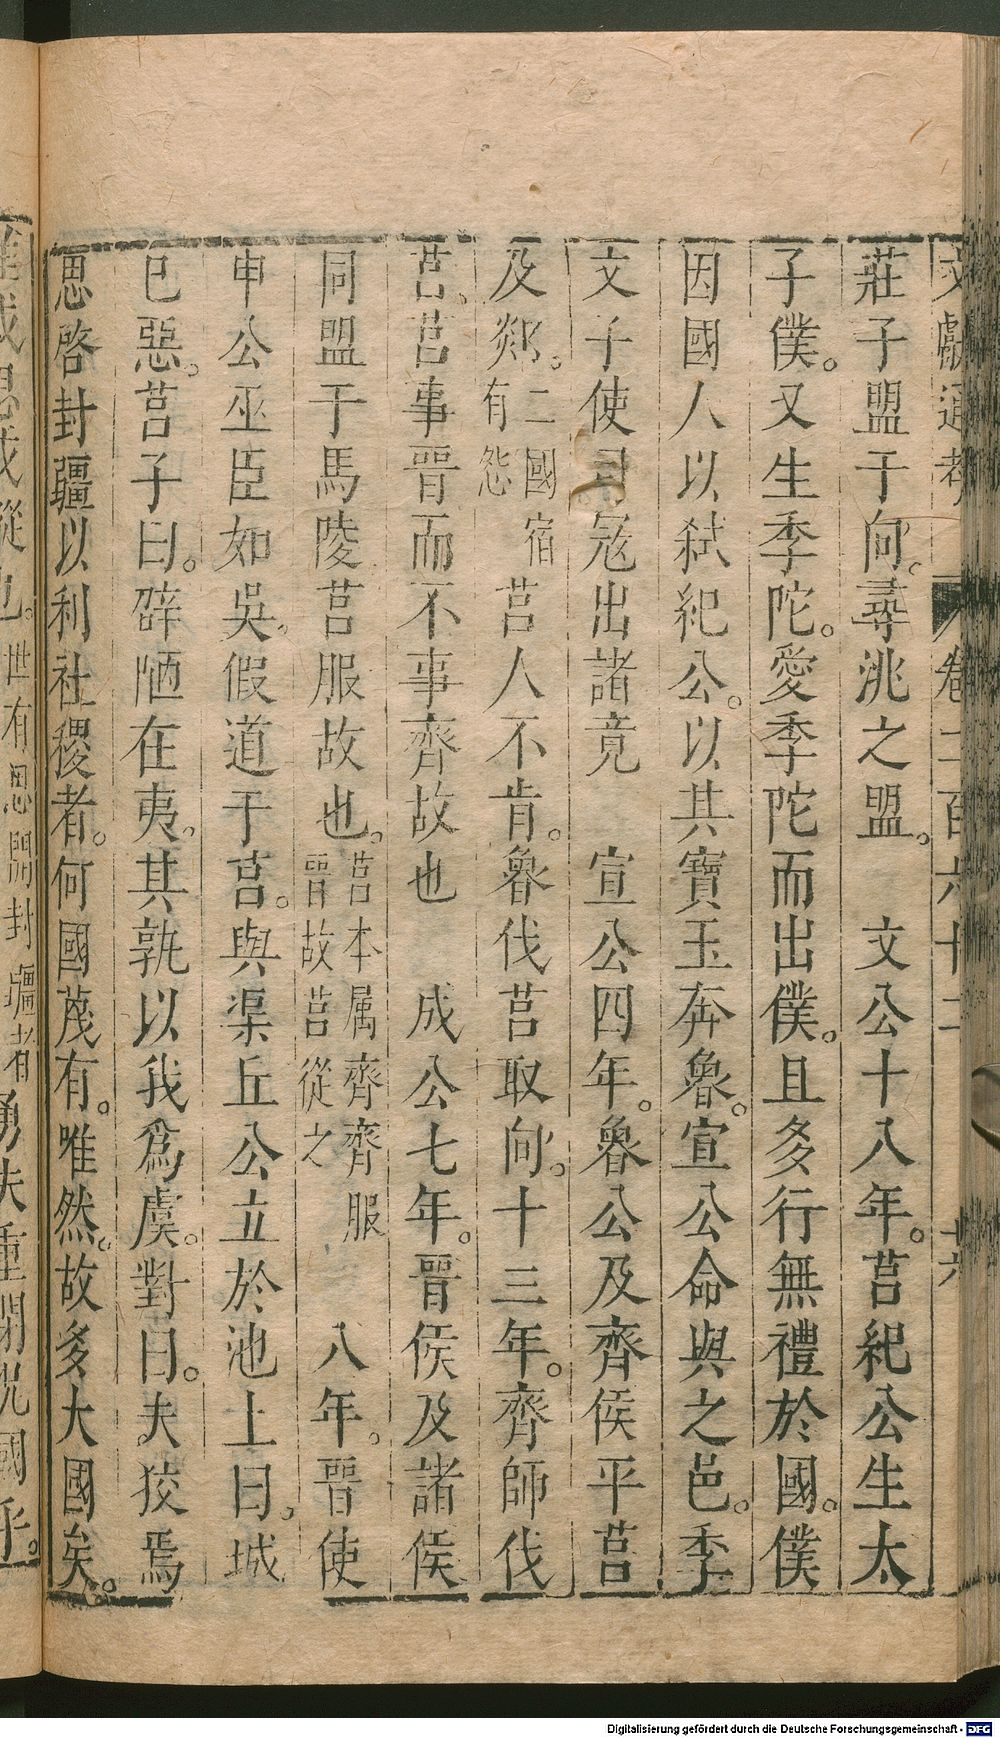 文獻通考 卷二百六十二 六
莊子盟于向。尋洮之盟。 文公十八年。莒紀公生太
子僕。又生季陀。愛季陀而出僕。且多行無禮於國。僕
因國人以弒紀公。以其寶玉奔魯。宣公命與之邑。季
文子使司寇出諸竟 宣公四年。魯公及齊侯平莒
及郯。二國宿有怨 莒人不肯。魯伐莒取向。十三年。齊師伐
莒。莒事晉而不事齊故也 成公七年。晉侯及諸侯
同盟于馬陵莒服故也。莒本属齊齊服晉故莒從之 八年。晉使
申公巫臣如吳。假道于莒。與渠丘公立於池上曰。城
已惡。莒子曰。辟陋在夷。其孰以我爲虞。對曰。夫狡焉
思啓封疆以利社稷者。何國蔑有。唯然。故多大國矣。
唯或思或從也。世有思開封疆者勇夫重閉況國乎。
Digitalisierung gefördert durch die Deutsche Forschungsgemeinschaft - DFG